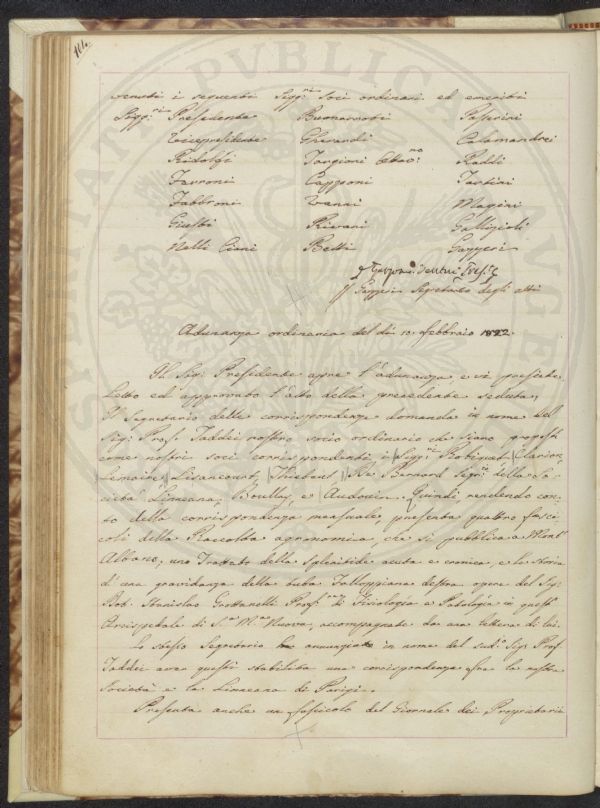 venuti i seguenti Sigg.ri soci ordinari ed emeriti
Sigg.ri Presidente Buonarroti Passerini
Vicepresidente Gherardi Calamandrei
Ridolfi Targioni Raddi
Ferroni Capponi Tartini
Fabbroni Vanni Magini
Giusti Rivani Gallizioli
Nelli Ciani Betti Gazzeri
Gazzeri Segretario degli atti
Adunanza ordinaria del dì 10. Febbraio 1822.
Il Sig. Presidente apre l'adunanza e vi presiede,
Letto ed approvato l'atto della precedente seduta,
Il Segretario delle corrispondenze domanda in nome del
Sig. Prof. Taddei nostro socio ordinario che siano proposti
come nostri soci corrispondenti i Sigg.ri Robiquet, Clarion,
Lemaire, Thiebaut De Bernard Seg.rio della So-
cietà Linneana, Boullay, e Audouin. Quindi rendendo con-
to della corrispondenza mensuale, presenta quattro fasci-
coli della Raccolta agronomica, che si pubblica a Mont'
Albano, uno Trattato della Splenitide acuta e cronica, e la storia
di una gravidanza della tuba Falloppiana destra opere del Sig.
Dot. Stanislao Grottanelli Prof. di Fisiologia e Patologia in quest'
Arcispedale di S.a M.a Nuova, accompagnate da una lettera di lui.
Lo stesso Segretario annunzia in nome del sud.o Sig. Prof.
Taddei aver questi stabilita una corrispondenza fra la nostra
Società e la Linneana di Parigi.
Presenta anche un fascicolo del Giornale dei Proprietarii